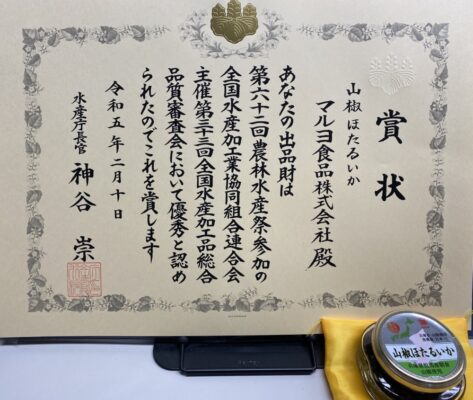 賞状
山椒ほたるいか
マルヨ食品株式会社 殿
あなたの出品財は
第六十二回農林水産祭参加の
全国水産加工業協同組合連合会
主催第三十三回全国水産加工品総合
品質審査会において優秀と認め
られたのでこれを賞します
令和五年二月十日
水産庁長官 神谷 崇
山椒ほたるいか